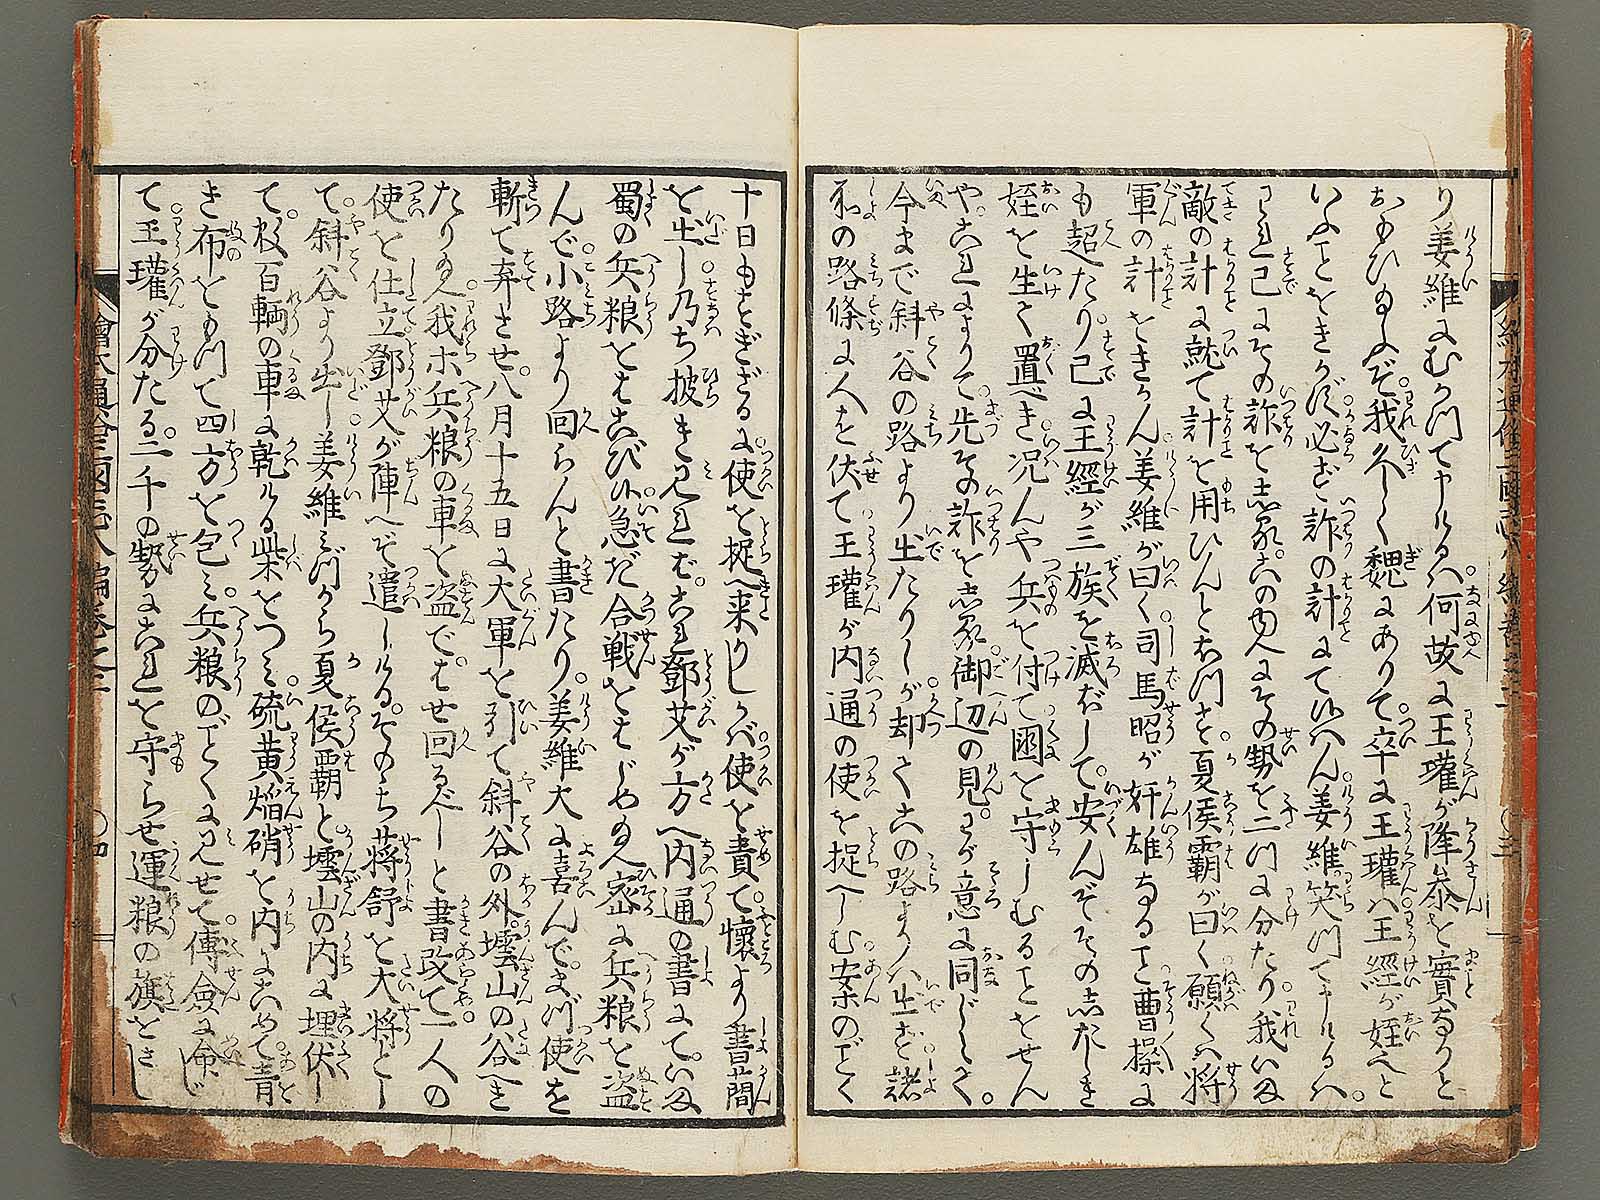 り姜維にむかつて申けるハ。何故に王瓘が降参を實なりと
おもひ給ふぞ。我久しく魏にありて。卒に王瓘ハ王經が姪と
いふことをきかず。必ず詐の計にて候ハん。姜維笑つて申けるハ。
われ已にその詐を志る。この由へにその勢を二つに分たり。我いま
敵の計に就て計を用ひんとおもふ。夏侯覇が曰く願くハ将
軍の計をきかん。姜維が曰く司馬昭が奸雄なること曹操に
も超たり。已に王經が三族を滅だして。安んぞその志たしき
姪を生て置べき。况んや兵を付て國を守しむることをせん
や。これによりて。先その詐を志る。御辺の見。わが意に同じとて。
今まで斜谷の路より出たりしが却てこの路よりハ出ず。諸
所の路條に人を伏て王瓘が内通の使を捉へしむ。案のごとく
十日もすぎざるに。使を捉へ来りしかバ。使を責て。懐より書簡
を出し。乃ち披き見れば。これ鄧艾が方へ内通の書にて。いま
蜀の兵粮をはこび候。急だ合戦をはじめ給へ。密に兵粮を盗
んで。小路より回らんと書たり。姜維大に喜んで。まづ使を
斬て弃させ。八月十五日に大軍を引て斜谷の外。壜山の谷へき
たり給へ。我ホ兵粮の車を盗で。はせ回るべしと書改て。一人の
使を仕立鄧艾が陣へぞ遣しける。そのゝち蒋舒を大将とし
て。斜谷より出し。姜維ミづから夏侯覇と壜山の内に埋伏し
て。数百輌の車に乾ける柴をつミ。硫黄焔硝を内にこめて。青
き布をもつて四方を包ミ。兵粮のごとくに見せて。傅僉に命じ
て。王瓘が分たる。二千の勢にこれを守らせ。運粮の旗をさし
繪本通俗三國志八編巻之二
〇四